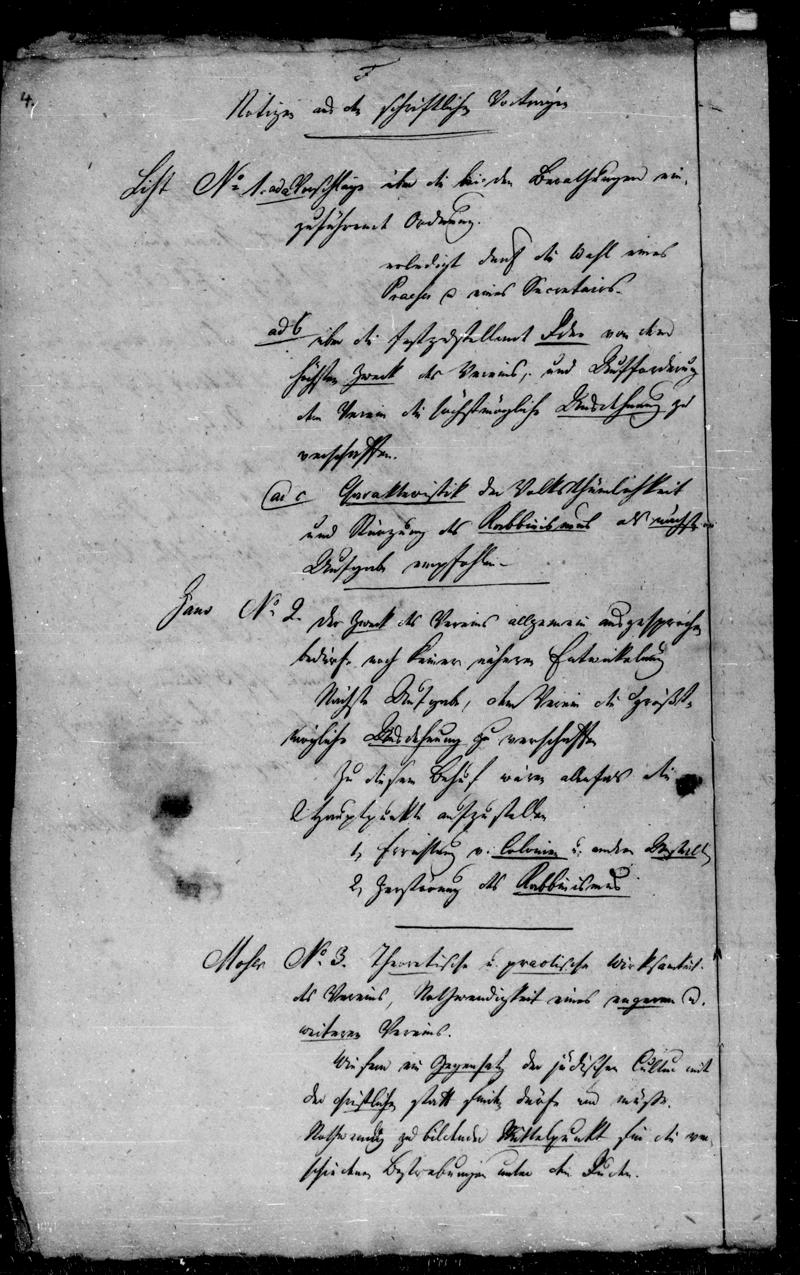 4.
F
Notizen aus den schriftlichen Vorträgen
List No 1. ad a Vorschläge über die bei den Berathungen ein-
zuführende Ordnung.
erledigt durch die Wahl eines
Praeses & eines Secretairs.
ad b über die festzustellende Idee von dem
höchsten Zweck des Vereins, und Aufforderung
dem Verein die höchstmögliche Ausdehnung zu
verschaffen.
ad c Charakteristik der Volksthümlichkeit
und Stürzung des Rabbinismus als nächste
Aufgabe empfohlen.
Gans No 2. Der Zweck des Vereins allgemein ausgesprochen
bedürfe noch keiner nähern Entwickelung
Nächste Aufgabe, dem Verein die größt-
mögliche Ausdehnung zu verschaffen
Zu diesem Behuf wären die
2 Hauptpunkte aufzustellen
1, Errichtung v. Colonien u. andern Anstalt
2, Zerstörung des Rabbinismus
Moser No 3. Theoretische u. practische Wirksamkeit
des Vereins, Nothwendigkeit eines engeren u.
weiteren Vereins.
Wiefern ein Gegensatz der jüdischen Cultur mit
der christlichen statt finden dürfe und müsse.
Nothwendig zu bildender Mittelpunkt für die ver-
schiedenen Bestrebungen unter den Juden.